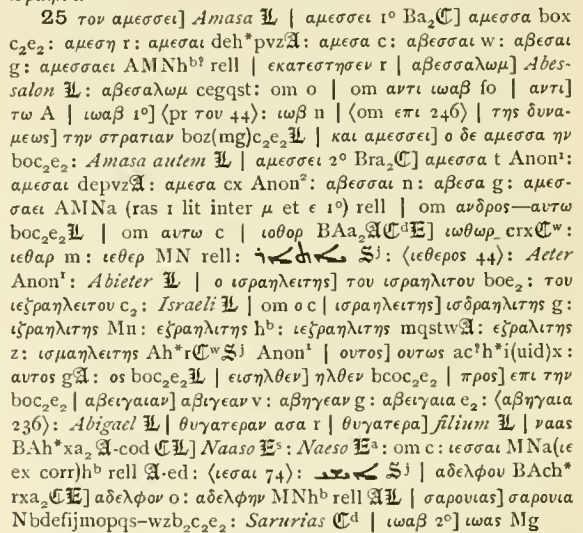 25 τον αμεσσει] Amasa 𝕷 | αμεσσει 1° Ba₂ℭ] αμεσσα box
c₂e₂: αμεση r: αμεσαι deh*pvz𝔄: αμεσα c: αβεσσαι w: αβεσαι
g: αμεσσαει AMNhᵇ? rell | εκατεστησεν r | αβεσσαλωμ] Abes-
salon 𝕷: αβεσαλωμ cegqst: om o | om αντι ιωαβ fo | αντι]
τω A | ιωαβ 1°] ⟨pr του 44⟩: ιωβ n | ⟨om επι 246⟩ | της δυνα-
μεως] την στρατιαν boz(mg)c₂e₂𝕷 | και αμεσσει] ο δε αμεσσα ην
boc₂e₂: Amasa autem 𝕷 | αμεσσει 2° Bra₂ℭ] αμεσσα t Anon¹:
αμεσαι depvz𝔄: αμεσα cx Anon²: αβεσσαι n: αβεσα g: αμεσ-
σαει AMNa (ras 1 lit inter μ et ε 1°) rell | om ανδρος—αυτω
boc₂e₂𝕷 | om αυτω c | ιοθορ BAa₂𝔄ℭᵈ𝔈] ιωθωρ crxℭʷ:
ιεθαρ m: ιεθερ MN rell: 𝕾ʲ: ⟨ιεθερος 44⟩: Aeter
Anon¹: Abieter 𝕷 | ο ισραηλειτης] του ισραηλιτου boe₂: του
ιεζραηλειτου c₂: Israeli 𝕷 | om ο c | ισραηλειτης] ισδραηλιτης g:
ιζραηλιτης Mn: εζραηλιτης hᵇ: ιεζραηλιτης mqstw𝔄: εζραλιτης
z: ισμαηλειτης Ah*rℭʷ𝕾ʲ Anon¹ | ουτος] ουτως ac?h*i(uid)x:
αυτος g𝔄: ος boc₂e₂𝕷 | εισηλθεν] ηλθεν bcoc₂e₂ | προς] επι την
boc₂e₂ | αβειγαιαν] αβιγεαν v: αβηγεαν g: αβειγαια e₂: ⟨αβηγαια
236⟩: Abigael 𝕷 | θυγατεραν ασα r | θυγατερα] filium 𝕷 | ναας
BAh*xa₂𝔄-cod ℭ𝕷] Naaso 𝔈ˢ: Naeso 𝔈ᵃ: om c: ιεσσαι MNa(ιε
ex corr)hᵇ rell 𝔄-ed: ⟨ιεσαι 74⟩: 𝕾ʲ | αδελφου BAch*
rxa₂ℭ𝔈] αδελφον o: αδελφην MNhᵇ rell 𝔄𝕷 | σαρουιας] σαρουια
Nbdefijmopqs–wzb₂c₂e₂: Sarurias ℭᵈ | ιωαβ 2°] ιωας Mg